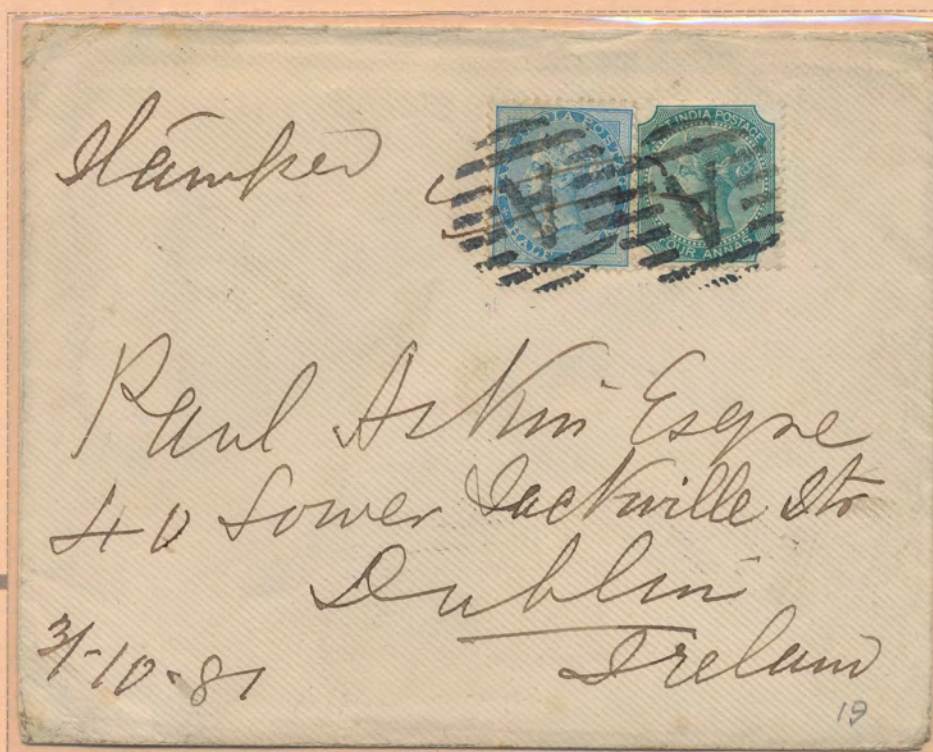 Stamped
EAST INDIA POSTAGE
HALF
EAST INDIA POSTAGE
FOUR ANNAS
Paul Askin Esqre
40 Lower Sackville Str
Dublin
Ireland
3/-10-81
19